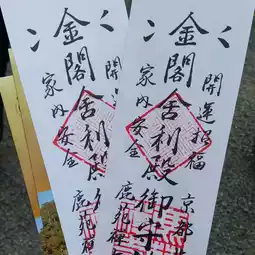 開運招福
金閣舎利殿御守
家内安全
京都
鹿苑禅
開運
金閣舎利殿
家内安全
鹿苑禅